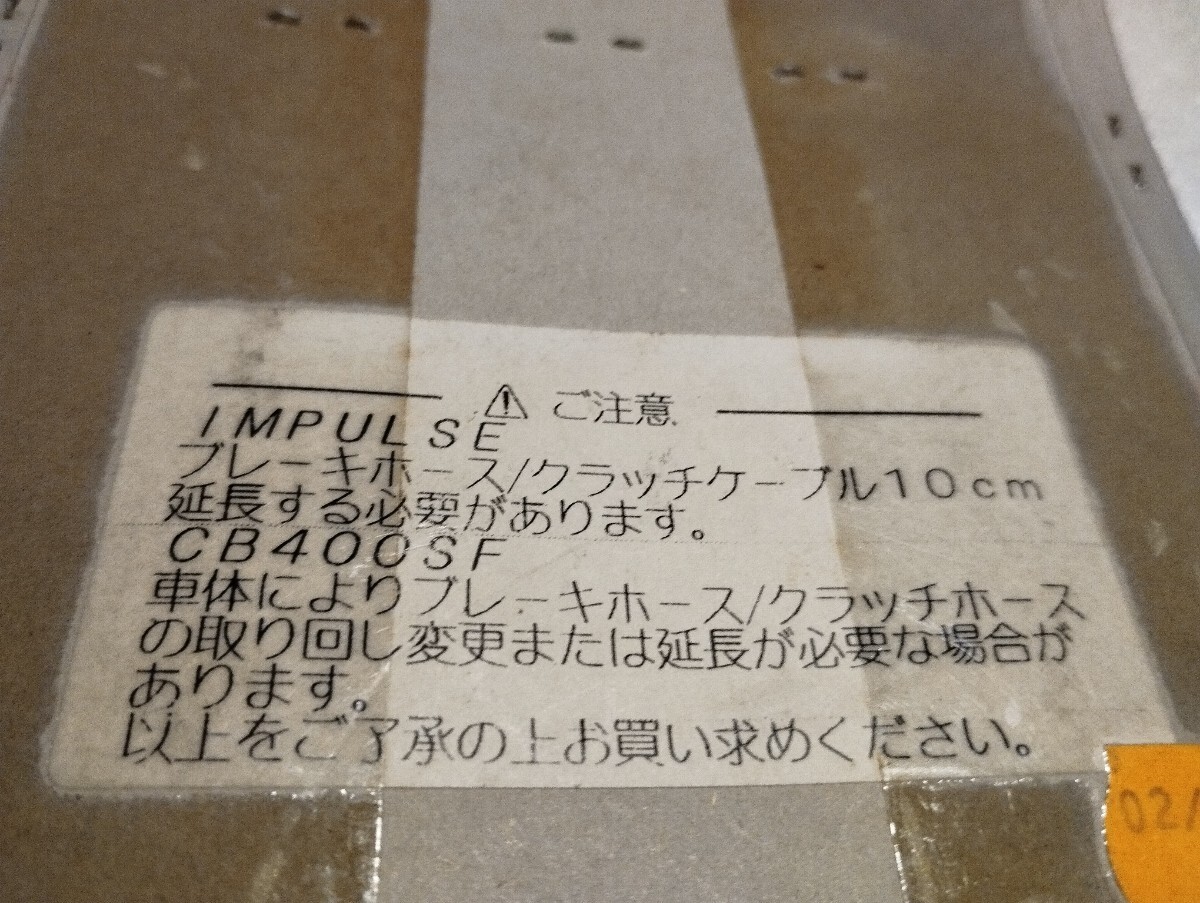 ⚠ ご注意
IMPULSE
ブレーキホース/クラッチケーブル10cm
延長する必要があります。
CB400SF
車体によりブレーキホース/クラッチホース
の取り回し変更または延長が必要な場合が
あります。
以上をご了承の上お買い求めください。
02/